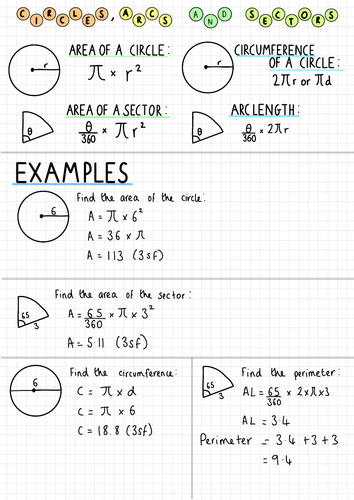 CIRCLES, ARCS AND SECTORS
AREA OF A CIRCLE:
r
π × r²
CIRCUMFERENCE
OF A CIRCLE:
r
2πr or πd
AREA OF A SECTOR:
θ
θ/360 × πr²
ARC LENGTH:
θ
θ/360 × 2πr
EXAMPLES
Find the area of the circle:
6
A = π × 6²
A = 36 × π
A = 113 (3sf)
Find the area of the sector:
65
3
A = 65/360 × π × 3²
A = 5·11 (3sf)
Find the circumference:
6
C = π × d
C = π × 6
C = 18.8 (3sf)
Find the perimeter:
65
3
AL = 65/360 × 2×π×3
AL = 3·4
Perimeter = 3·4 +3 +3
= 9·4